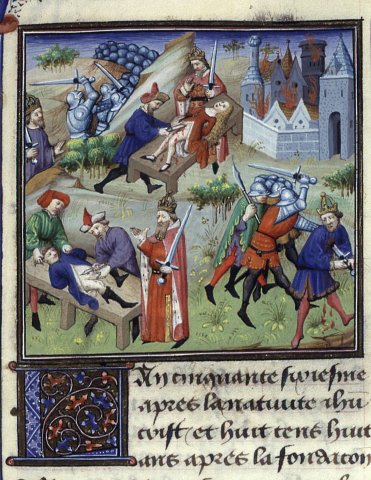 LAn cinquante sixiesme
apres la natiuite ihu
crist et huit cens huit
ans apres la fondacion